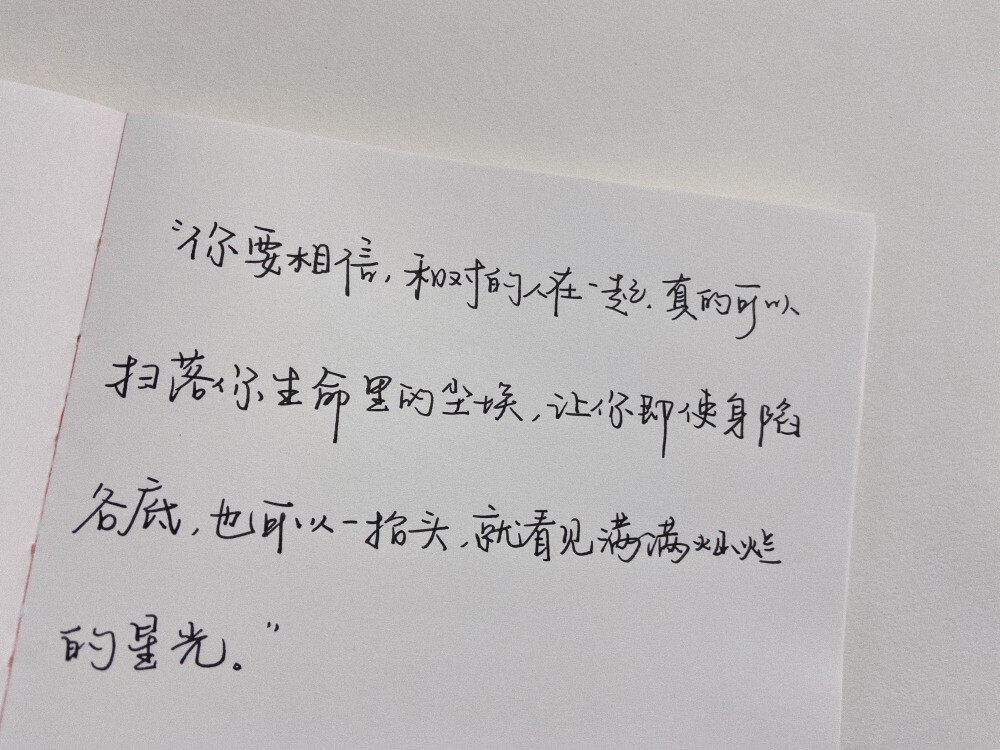 “你要相信,和对的人在一起,真的可以
扫落你生命里的尘埃,让你即使身陷
谷底,也可以一抬头,就看见满满灿烂
的星光。”